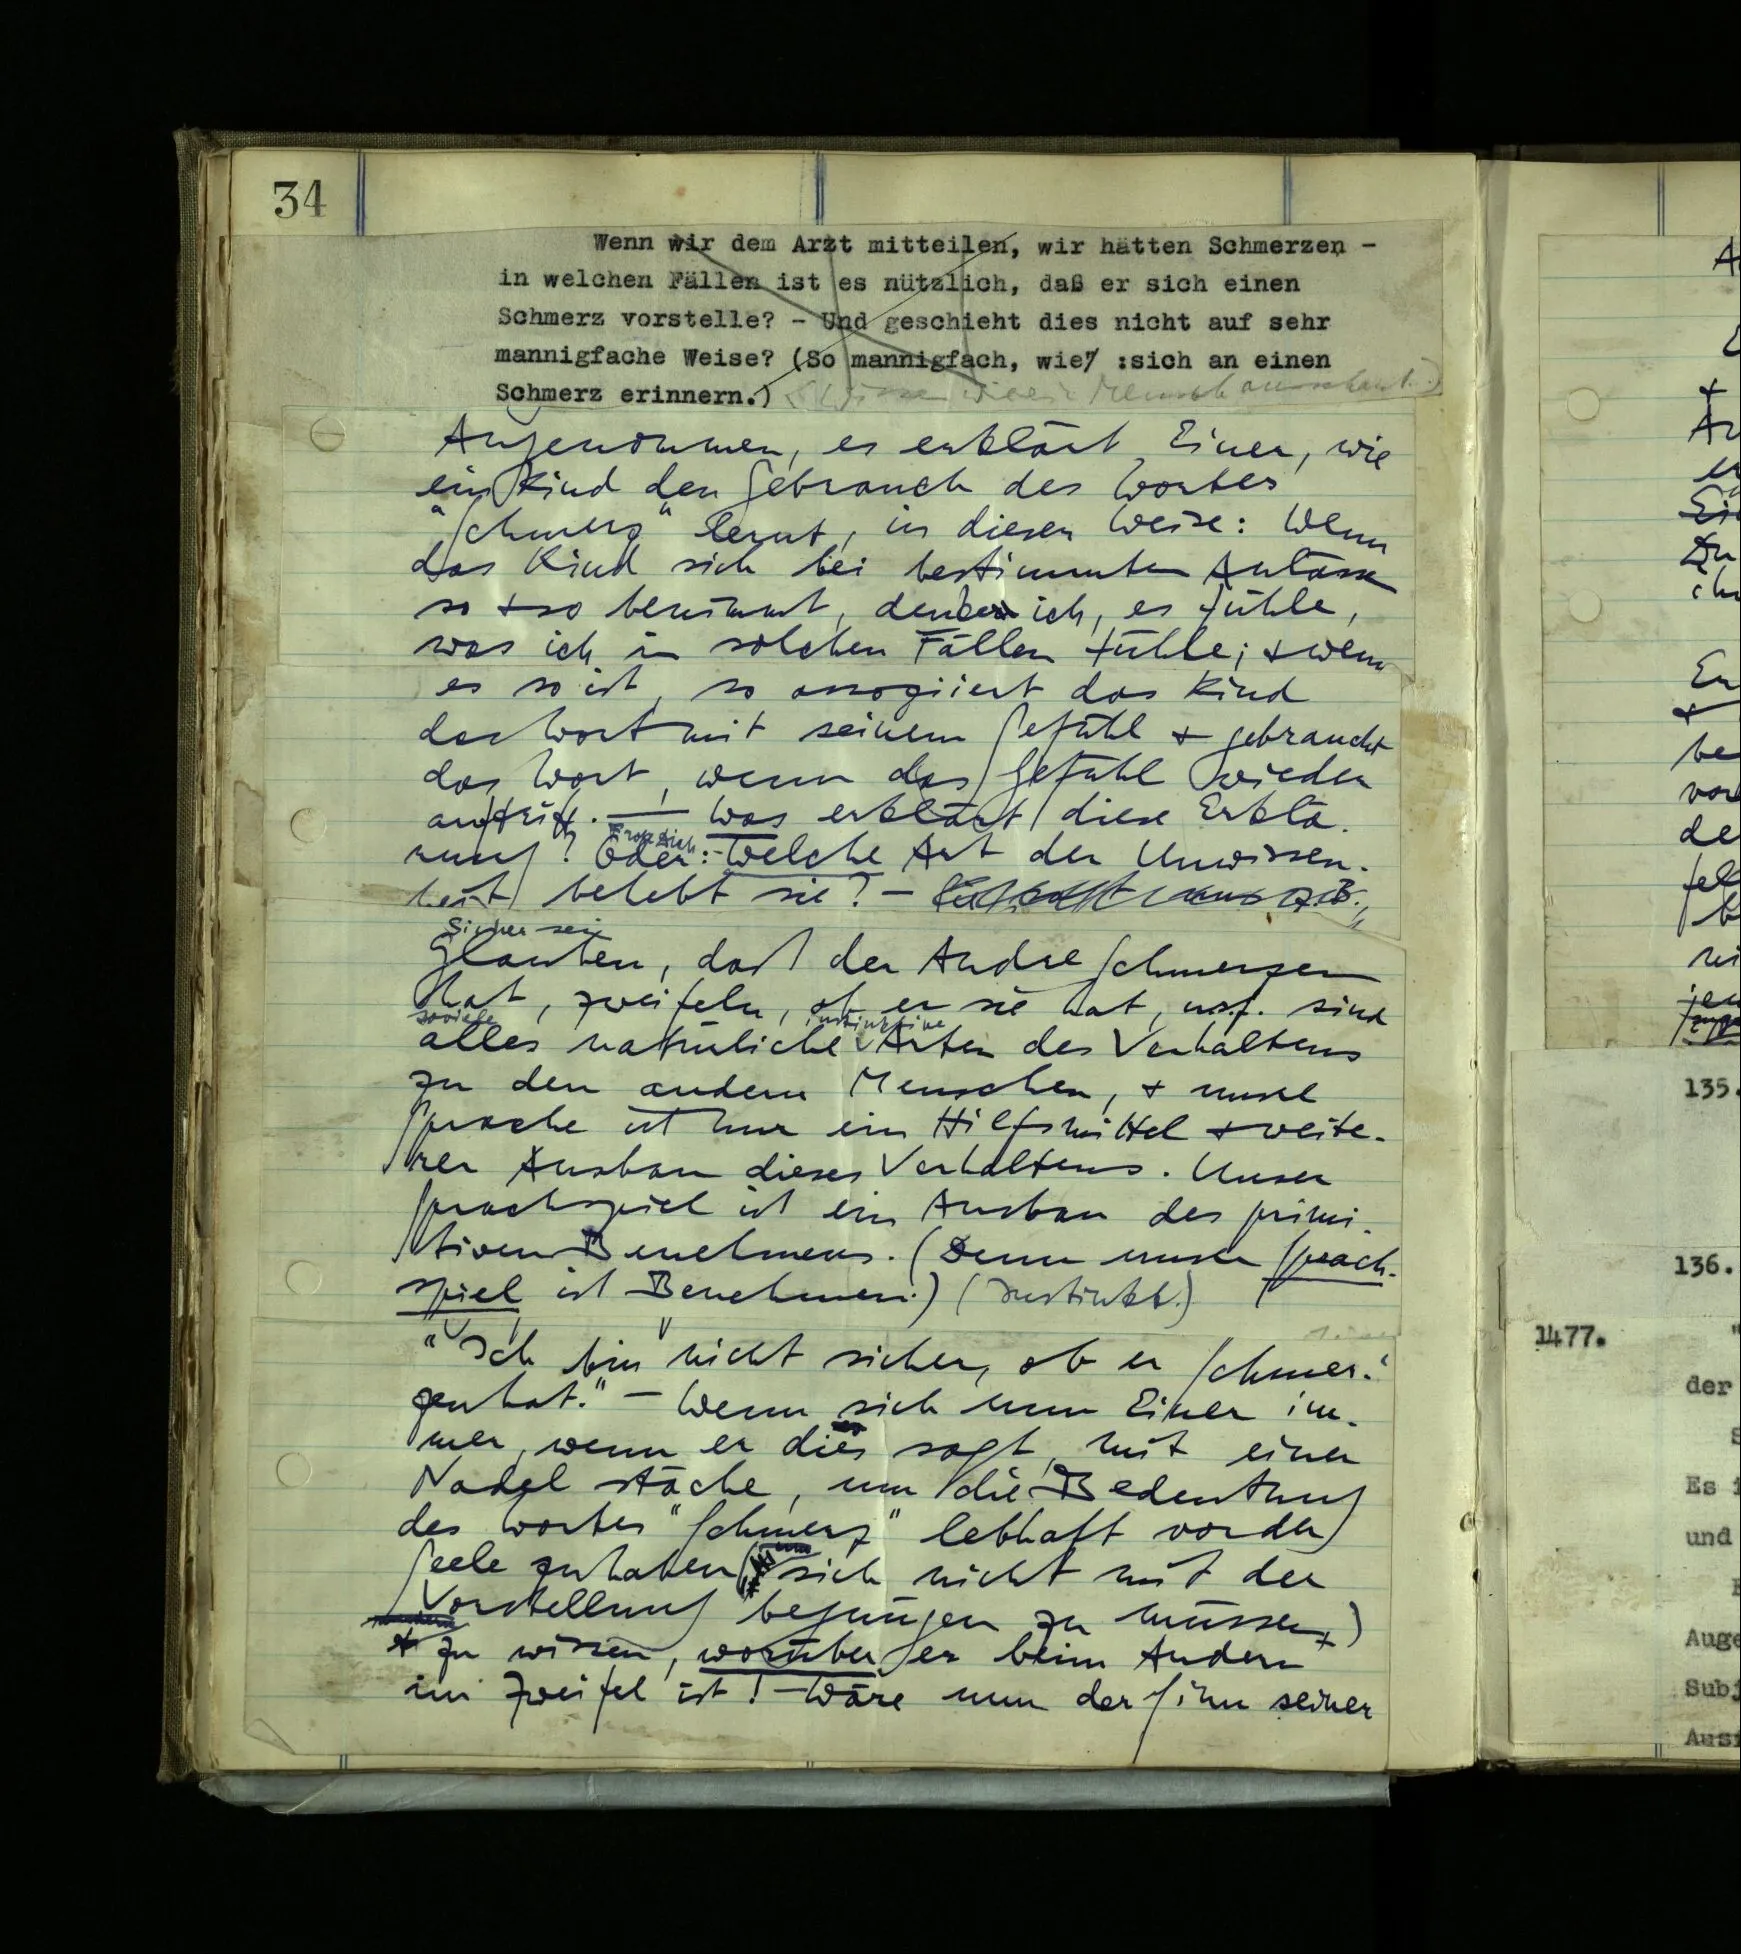 34
Wenn wir dem Arzt mitteilen, wir hätten Schmerzen -
in welchen Fällen ist es nützlich, daß er sich einen
Schmerz vorstelle? - Und geschieht dies nicht auf sehr
mannigfache Weise? (So mannigfach, wie/ :sich an einen
Schmerz erinnern.) (Wissen wie ein Mensch ausschaut.)
Angenommen, es erklärt Einer, wie
ein Kind den Gebrauch des Wortes
"Schmerz" lernt, in dieser Weise: Wenn
das Kind sich bei bestimmten Anlässen
so + so benimmt, denke ich, es fühle,
was ich in solchen Fällen fühle; + wenn
es so ist, so assoziiert das Kind
das Wort mit seinem Gefühl + gebraucht
das Wort, wenn das Gefühl wieder
auftritt. — Was erklärt diese Erklä-
rung? Oder: Welche Art der Unwissen-
heit behebt sie? –
Sicher sein
Glauben, daß der Andre Schmerzen
hat, zweifeln, ob er sie hat, usf. sind
soviele instinktive
alles natürliche Arten des Verhaltens
zu den andern Menschen, + unsre
Sprache ist nur ein Hilfsmittel + weite-
rer Ausbau dieses Verhaltens. Unser
Sprachspiel ist ein Ausbau des primi-
tiven Benehmens. (Denn unser Sprach-
spiel ist Benehmen.) (Instinkt.)
"Ich bin nicht sicher, ob er Schmer-
zen hat." – Wenn sich nun Einer im-
mer, wenn er dies sagt, mit einer
Nadel stäche, um die Bedeutung
des Wortes "Schmerz" lebhaft vor der
Seele zu haben (um sich nicht mit der
Vorstellung begnügen zu müssen)
+ zu wissen, worüber er beim Andern
im Zweifel ist! – Wäre nun der Sinn seiner
135.
136.
1477.
der
Es
und
Auge
Subj
Ausf